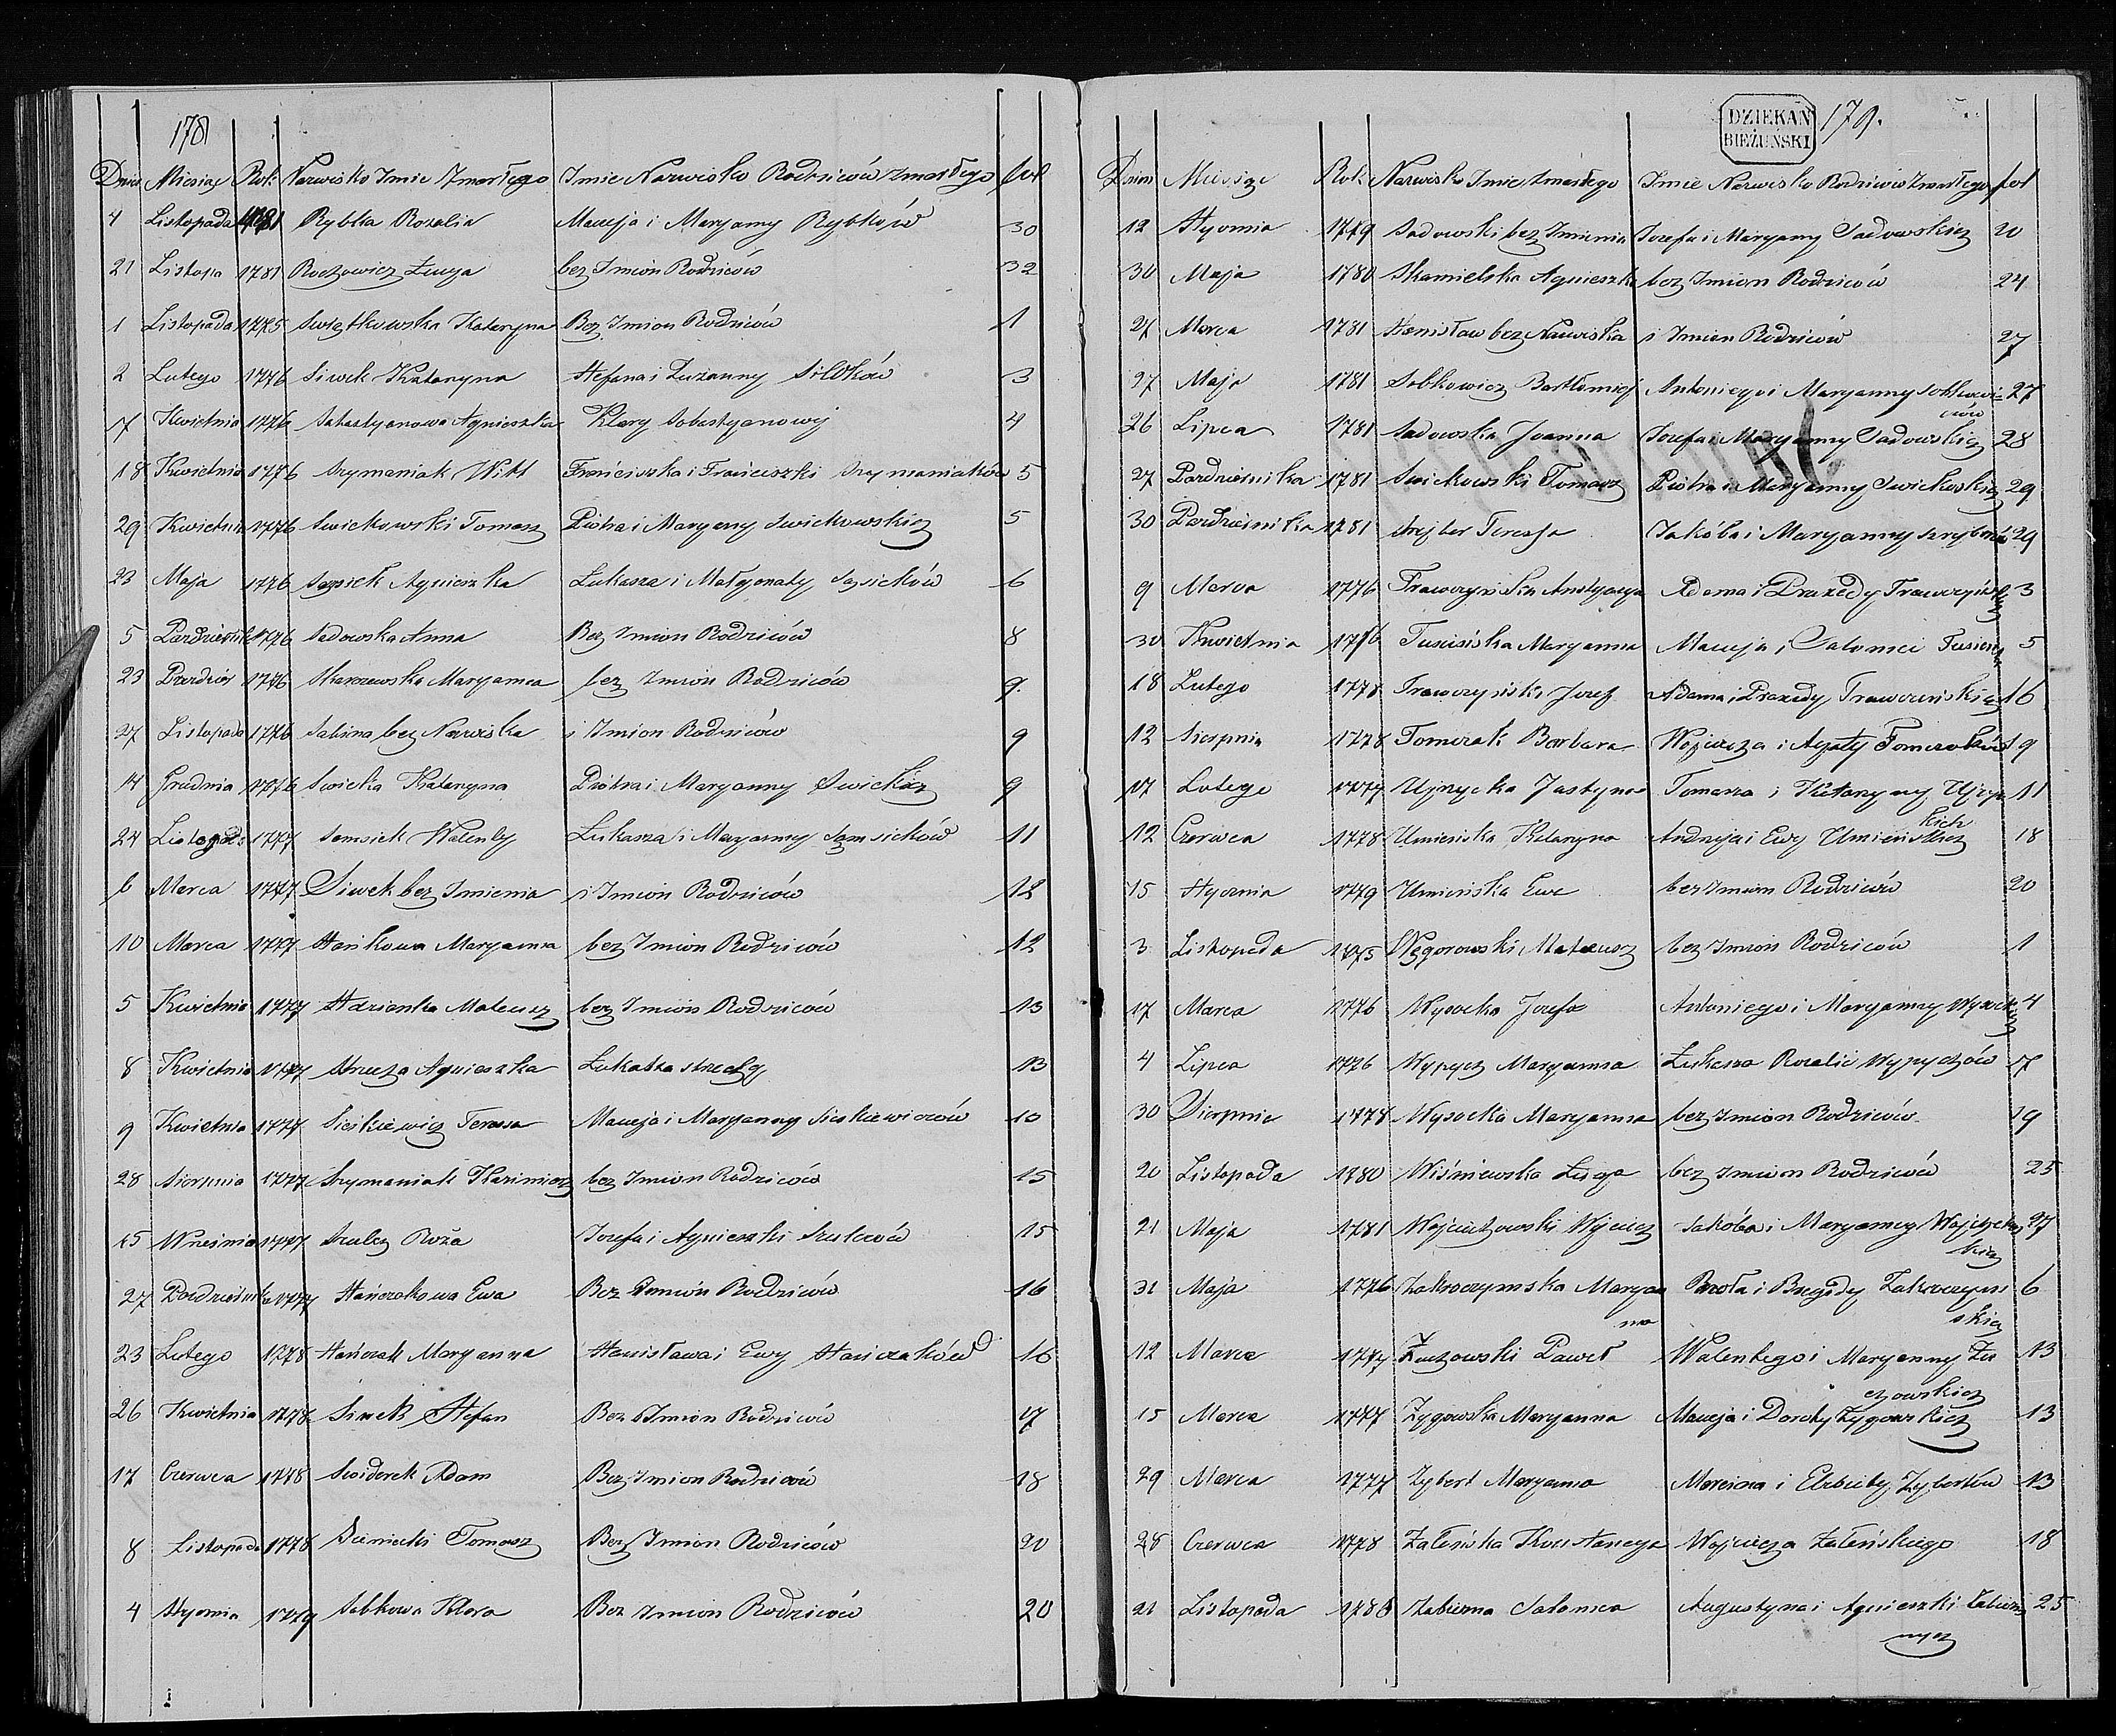 178
Dnia Miesiąc Rok Nazwisko Imie Zmarłego Imie Nazwisko Rodziców zmarłego fol
4 Listopada 1781 Rybka Rozalia Macieja i Maryanny Rybków 30
21 Listopa 1781 Łucya bez Imion Rodziców 32
1 Listopada 1775 Swiętkowska Kataryna Bez Imion Rodziców 1
2 Lutego 1776 Siwek Kataryna Stefana i Zuzanny Siwków 3
7 Kwietnia 1776 Sabastyanowa Agnieszka Klary Sobastyanowy 4
18 Kwietnia 1776 Szymaniak Wikt Franciszka i Franciszki Szymaniaków 5
29 Kwietnia 1776 Swickowski Tomasz Piotra i Maryany Swickowskich 5
23 Maja 1776 Agnieszka Łukasza i Małgorzaty 6
5 1776 Sadowska Anna Bez Imion Rodziców 8
23 1776 Skarzewska Maryanna bez Imion Rodziców 9
27 Listopada 1776 Sabina bez Nazwiska i Imion Rodziców 9
14 Grudnia 1776 Swicka Kataryna Piotra i Maryanny Swickich 9
24 1777 Samsick Walenty Łukasza i Maryanny Samsicków 11
6 Marca 1777 Siwek bez Imienia i Imion Rodziców 12
10 Marca 1777 Stańkowa Maryanna bez Imion Rodziców 12
5 Kwietnia 1777 Mateusz bez Imion Rodziców 13
8 Kwietnia 1777 Agnieszka Łukasza 13
9 Kwietnia 1777 Sieśkiewicz Teressa Macieja i Maryanny Sieskiewiczów 13
28 Sierpnia 1777 Szymaniak Kazimierz bez Imion Rodziców 15
15 Września 1777 Szulcz Roża Jozefa i Agnieszki Szulców 15
27 1777 Stańczakowa Ewa Bez Imión Rodziców 16
23 Lutego 1778 Stańczak Maryanna Stanisława i Ewy Stańczaków 16
26 Kwietnia 1778 Siwek Stefan Bez Imion Rodziców 17
17 Czerwca 1778 Swiderek Adam Bez Imion Rodziców 18
8 Listopada 1778 Sieniecki Tomasz Bez Imion Rodziców 20
4 Stycznia 1779 Sabkowa Klara Bez Imion Rodziców 20
DZIEKAN
BIEŻUŃSKI
179.
Dzień Miesiąc Rok Nazwisko Imie Zmarłego Imie Nazwisko Rodziców Zmarłego fol
12 Stycznia 1779 Sadowski bez Imienia Jozefa i Maryanny Sadowskich 20
30 Maja 1780 Skamielska Agnieszka bez Imion Rodziców 24
27 Marca 1781 Stanisław bez Nazwiska i Imion Rodziców 27
27 Maja 1781 Sobkowicz Bartłomiej Antoniego i Maryanny Sobkowi 27
ców
26 Lipca 1781 Sadowska Joanna Jozefa i Maryanny Sadowskich 28
27 Pazdziernika 1781 Swickowski Tomasz Piotra i Maryanny Swickowskich 29
30 Pazdziernika 1781 Teressa Jakóba i Maryanny 29
9 Marca 1776 Trawczyńska Adama i Praxedy 3
30 Kwietnia 1776 Tusińska Maryanna Macieja i Salomei 5
18 Lutego 1778 Trawczyński Jozef Adama i Praxedy Trawczyńskich 16
12 Sierpnia 1778 Tomczak Barbara Wojciecha i Agaty Tomczaków 19
17 Lutego 1777 Ujzycka Justyna Tomasza i Kataryny Ujzyc 11
kich
12 Czerwca 1778 Umieńska Kataryna Andrzeja i Ewy Umieńskich 18
15 Stycznia 1779 Umieńska Ewa bez Imion Rodziców 20
3 Listopada 1775 Węgorowski Mateusz bez Imion Rodziców 1
17 Marca 1776 Wysocka Jozefa Antoniego i Maryanny Wysockich 4
4 Lipca 1776 Wypych Maryanna Łukasza Rozalii Wypychów 7
30 Sierpnia 1778 Wysocka Maryanna bez Imion Rodziców 19
20 Listopada 1780 Wiśniewska Łucya bez Imion Rodziców 25
21 Maja 1781 Wojciechowski Jakóba i Maryanny 27
31 Maja 1776 Zakroczymska Maryan Karola i Brygidy Zakroczym 6
na skich
12 Marca 1777 Żuczowski Paweł Walentego i Maryanny Żu 13
czowskich
15 Marca 1777 Zygowska Maryanna Macieja i Doroty Zygowskich 13
29 Marca 1777 Zybert Maryanna Marcina i Elżbiety Zybertów 13
28 Czerwca 1778 Zaleńska Konstancya Wojciecha Zaleńskiego 18
21 Listopada 1780 Zabiezna Salomea Augustyna i Agnieszki Zabiez 25
nych